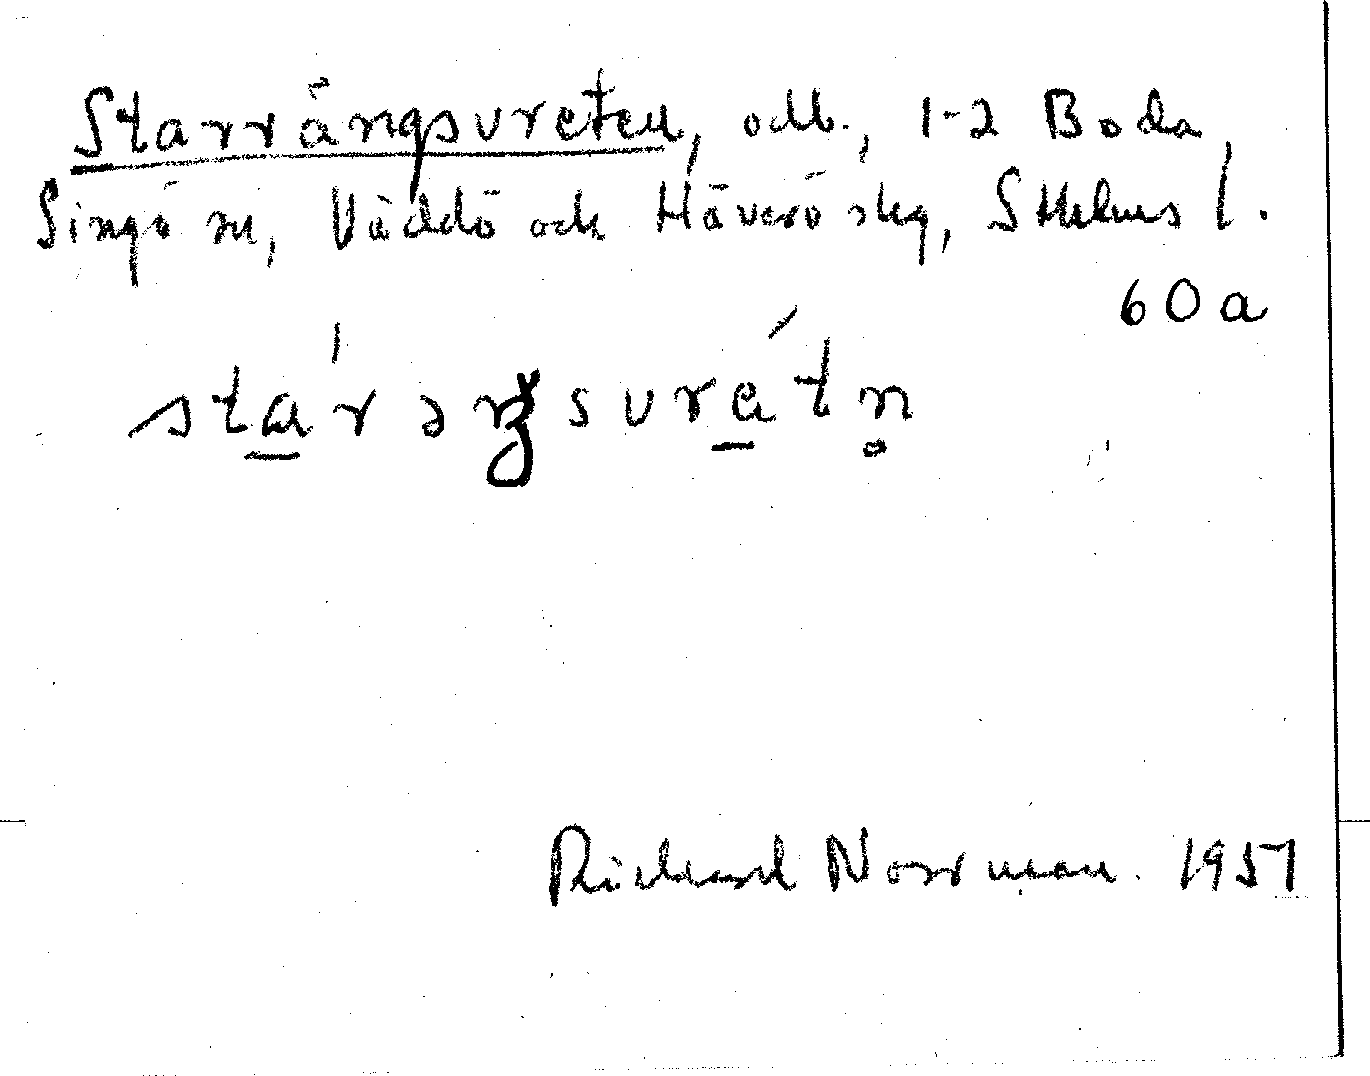 Starrängsvreten, odlb., 1-2 Boda,
Singö sn, Väddö och Häverö skg, Sthlms l.
60a
stárəŋsvrétn̥
Richard Norrman. 1951